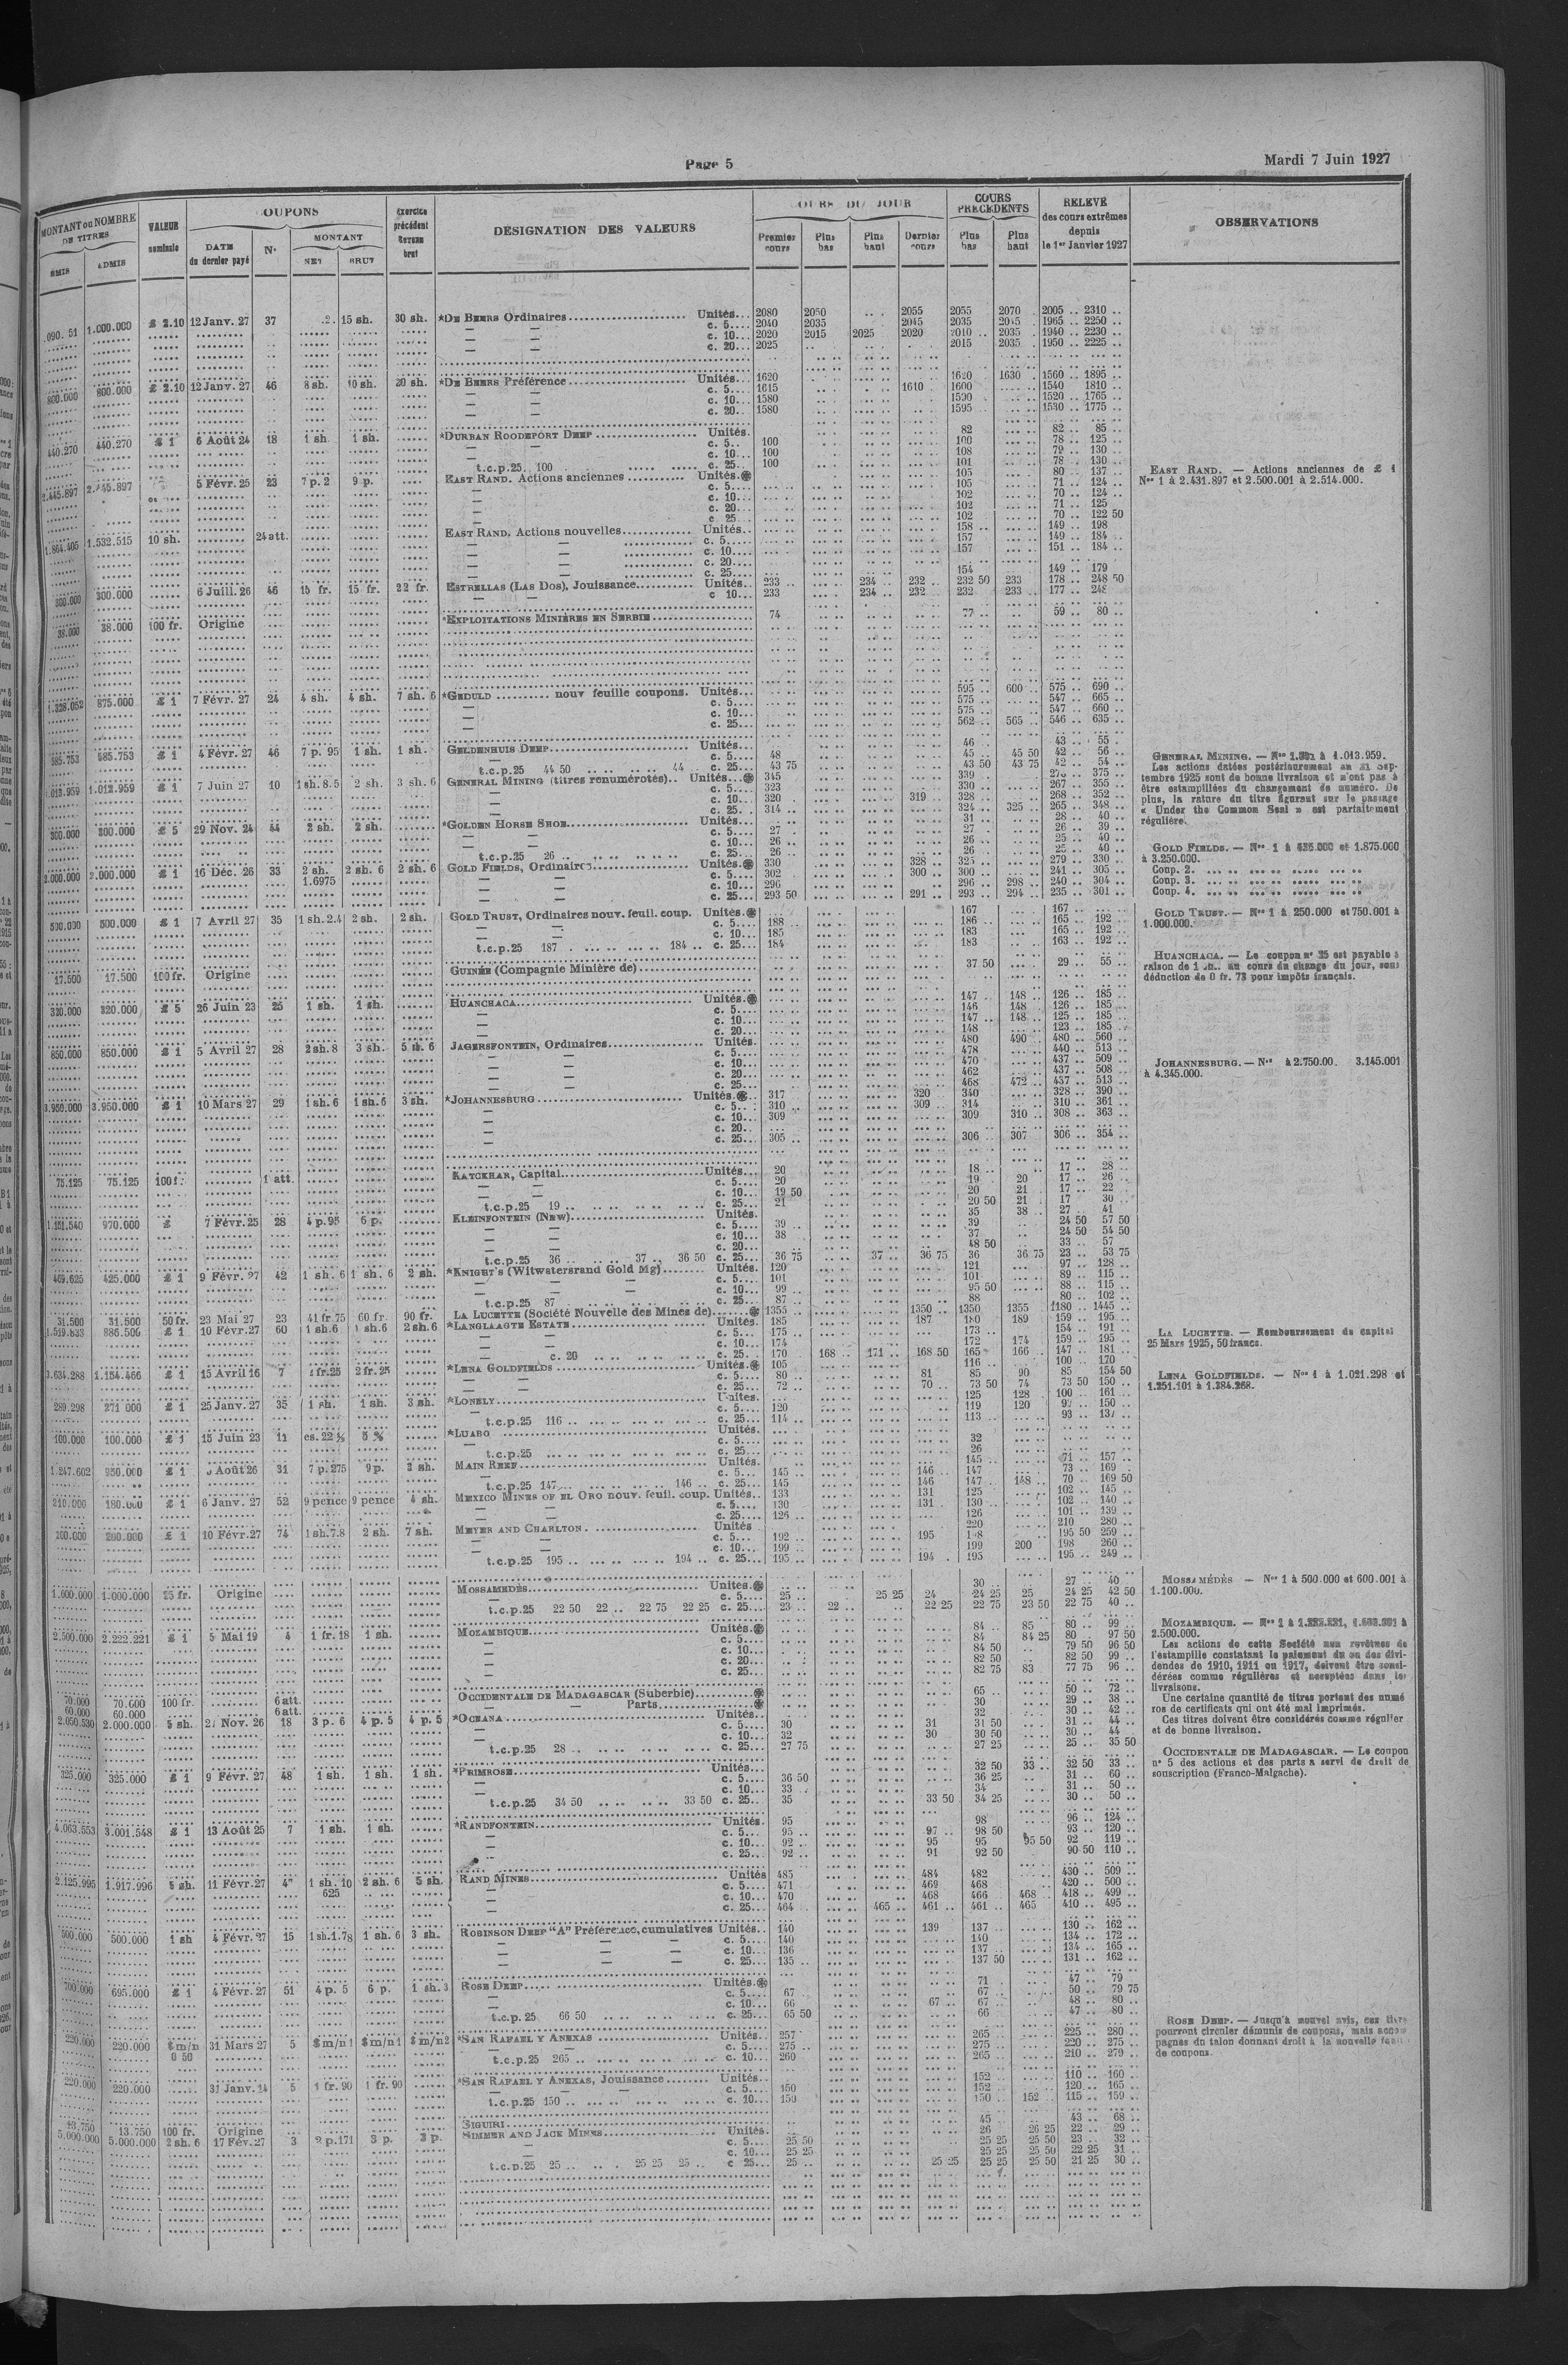 Page 5
Mardi 7 Juin 1927
MONTANT ou NOMBRE DE TITRES
VALEUR nominale
COUPONS
DATE du dernier payé
N°
MONTANT
BRUT
DESIGNATION DES VALEURS
DU JOUR
Premier cours
Plus bas
Plus haut
Dernier cours
COURS PRECEDENTS
Plus bas
Plus haut
RELEVÉ des cours extrêmes depuis le 1er Janvier 1927
OBSERVATIONS
1.000.000 £ 2.10 12 Janv. 27 37 15 sh. 30 sh. *DE BEERS Ordinaires Unités 2080 2050 2055 2055 2070 2005 2310
c. 5 2040 2035 2045 2035 2045 1965 2250
c. 10 2020 2015 2025 2020 2010 2035 1940 2230
c. 20 2025 2015 2035 1950 2225
800.000 800.000 £ 2.10 12 Janv. 27 46 8 sh. 10 sh. 20 sh. *DE BEERS Préférence Unités 1620 1620 1630 1560 1895
c. 5 1615 1610 1600 1540 1810
c. 10 1580 1590 1520 1765
c. 20 1580 1595 1530 1775
440.270 440.270 £ 1 6 Août 24 18 1 sh 1 sh. *DURBAN ROODEPORT DEEP Unités 82 82 85
c. 5 100 100 78 125
c. 10 100 108 79 130
t.c.p.25 100 c. 25 100 101 78 130
2.445.897 2.445.897 5 Févr. 25 23 7 p. 2 9 p. EAST RAND. Actions anciennes Unités 105 80 137
c. 5 105 71 124
c. 10 102 70 124
c. 20 102 71 125
c. 25 102 70 122 50
1.864.405 1.532.515 10 sh. 24 att. EAST RAND, Actions nouvelles Unités 158 149 198
c. 5 157 149 184
c. 10 157 151 184
c. 20
c. 25 154 149 179
300.000 300.000 6 Juill. 26 46 15 fr. 15 fr. 22 fr. ESTRELLAS (LAS DOS), Jouissance Unités 233 234 232 232 50 233 178 248 50
c 10 233 234 232 232 233 177 248
38.000 38.000 100 fr. Origine *EXPLOITATIONS MINIÈRES EN SERBIE 74 77 59 80
1.328.052 875.000 £ 1 7 Févr. 27 24 4 sh. 4 sh. 7 sh. 6 *GEDULD nouv feuille coupons. Unités 595 600 575 690
c. 5 575 547 665
c. 10 575 547 660
c. 25 562 565 546 635
585.753 585.753 £ 1 4 Févr. 27 46 7 p. 95 1 sh. 1 sh. GELDENHUIS DEEP Unités 46 43 55
c. 5 48 45 45 50 42 56
t.c.p.25 44 50 44 c. 25 43 75 43 50 43 75 42 54
1.013.959 1.012.959 7 Juin 27 10 1 sh. 8.5 2 sh. 3 sh. 6 GENERAL MINING (titres renumérotés) Unités 345 339 375
c. 5 323 330 267 355
c. 10 320 319 328 268 352
c. 25 314 324 325 265 348
300.000 300.000 £ 5 29 Nov. 24 44 2 sh. 2 sh. *GOLDEN HORSE SHOE Unités 31 28 40
c. 5 27 27 26 39
c. 10 26 26 25 40
t.c.p.25 26 c. 25 26 26 25 40
2.000.000 2.000.000 £ 1 16 Déc. 26 33 2 sh. 1.6975 2 sh. 6 2 sh. 6 GOLD FIELDS, Ordinaires Unités 330 328 325 279 330
c. 5 302 300 300 241 305
c. 10 296 296 298 240 304
c. 25 293 50 291 293 294 235 301
500.000 500.000 £ 1 7 Avril 27 35 1 sh. 2.4 2 sh. 2 sh. GOLD TRUST, Ordinaires nouv. feuil. coup. Unités 167 167
c. 5 188 186 165 192
c. 10 185 183 165 192
t.c.p.25 187 184 c. 25 184 183 163 192
17.500 17.500 100 fr. Origine GUINÉE (Compagnie Minière de) 37 50 29 55
320.000 320.000 £ 5 26 Juin 23 25 1 sh. 1 sh. HUANCHACA Unités 147 148 126 185
c. 5 146 148 126 185
c. 10 147 148 125 185
c. 20 148 123 185
850.000 850.000 £ 1 5 Avril 27 28 2 sh. 8 3 sh. 5 sh. 6 JAGERSFONTEIN, Ordinaires Unités 480 490 480 560
c. 5 478 440 513
c. 10 470 437 509
c. 20 462 437 508
c. 25 468 472 437 513
3.950.000 3.950.000 £ 1 10 Mars 27 29 1 sh. 6 1 sh. 6 3 sh. *JOHANNESBURG Unités 317 320 340 328 390
c. 5 310 309 314 310 361
c. 10 309 309 310 308 363
c. 20
c. 25 305 306 307 306 354
75.125 75.125 100 f. 1 att. KATCHKAR, Capital Unités 20 18 17 28
c. 5 20 19 20 17 26
c. 10 19 50 20 21 17 22
t.c.p.25 19 c. 25 21 20 50 21 17 30
970.000 £ 7 Févr. 25 28 4 p. 95 6 p. KLEINFONTEIN (New) Unités 35 38 27 41
c. 5 39 39 24 50 57 50
c. 10 38 37 24 50 54 50
c. 20 48 50 33 57
t.c.p.25 36 37 36 50 c. 25 36 75 37 36 75 36 36 75 23 53 75
469.625 425.000 £ 1 9 Févr. 27 42 1 sh. 6 1 sh. 6 2 sh. *KNIGHT'S (Witwatersrand Gold Mg) Unités 120 121 97 128
c. 5 101 101 89 115
c. 10 99 95 50 88 115
t.c.p.25 87 c. 25 87 88 80 102
31.500 31.500 50 fr. 23 Mai 27 23 41 fr. 75 60 fr. 90 fr. LA LUCETTE (Société Nouvelle des Mines de) 1355 1350 1350 1355 1180 1445
886.506 £ 1 10 Févr. 27 60 1 sh. 6 1 sh. 6 2 sh. 6 *LANGLAAGTE ESTATE Unités 185 187 180 189 159 195
c. 5 175 173 154 191
c. 10 174 172 174 159 195
c. 20 c. 25 170 168 171 168 50 165 166 147 181
3.634.288 1.154.466 £ 1 15 Avril 16 7 2 fr. 25 2 fr. 25 *LENA GOLDFIELDS Unités 105 116 100 170
c. 5 80 81 85 90 85 154 50
c. 25 72 70 73 50 74 73 50 150
289.298 271 000 £ 1 25 Janv. 27 35 1 sh. 1 sh. 3 sh. *LONELY Unités 125 128 100 161
c. 5 120 119 120 150
t.c.p.25 116 c. 25 114 113 93 137
100.000 100.000 £ 1 15 Juin 23 11 5 % *LUABO Unités
c. 5 32
t.c.p.25 c. 25 26
1.247.602 950.000 £ 1 Août 26 31 7 p. 275 9 p. MAIN REEF Unités 145 71 157
c. 5 145 146 147 73 169
t.c.p.25 147 146 c. 25 145 146 147 148 70 169 50
210.000 180.000 £ 1 6 Janv. 27 52 9 pence 9 pence 4 sh. MEXICO MINES OF EL ORO nouv. feuil. coup. Unités 133 131 125 102 145
c. 5 130 131 130 102 140
c. 25 126 126 101 139
200.000 200.000 £ 1 10 Févr. 27 74 1 sh. 7.8 2 sh. 7 sh. MEYER AND CHARLTON Unités 220 210 280
c. 5 192 195 195 50 259
c. 10 199 199 200 198 260
t.c.p.25 195 194 c. 25 195 194 195 195 249
1.000.000 1.000.000 25 fr. Origine MOSSAMÉDÈS Unités 30 27 40
c. 5 25 25 25 24 24 25 25 24 25 42 50
t.c.p.25 22 50 22 22 75 22 25 c. 25 23 22 22 25 22 75 23 50 22 75 40
2.500.000 2.222.221 £ 1 5 Mai 19 4 1 fr. 18 1 sh. MOZAMBIQUE Unités 84 85 80 99
c. 5 84 84 25 80 97 50
c. 10 84 50 79 50 96 50
c. 20 82 50 82 50 99
c. 25 82 75 83 77 75 96
70.000 70.600 100 fr. 6 att. OCCIDENTALE DE MADAGASCAR (Suberbie) 65 50 72
60.000 60.000 6 att. Parts 30 29 38
2.050.530 2.000.000 5 sh. 27 Nov. 26 18 3 p. 6 4 p. 5 4 p. 5 *OCEANA Unités 32 30 42
c. 5 30 31 31 50 31 44
c. 10 32 30 30 50 30 44
t.c.p.25 28 c. 25 27 75 27 25 25 35 50
325.000 325.000 £ 1 9 Févr. 27 48 1 sh. 1 sh. 1 sh. *PRIMROSE Unités 32 50 33 32 50 33
c. 5 36 50 36 25 31 60
c. 10 33 34 31 50
t.c.p.25 34 50 33 50 c. 25 35 33 50 34 25 30 50
4.063.553 3.001.548 £ 1 13 Août 25 7 1 sh. 1 sh. *RANDFONTEIN Unités 95 98 96 124
c. 5 95 97 98 50 93 120
c. 10 92 95 95 95 50 92 119
c. 25 92 91 92 50 90 50 110
2.125.995 1.917.996 5 sh. 11 Févr. 27 1 sh. 10 625 2 sh. 6 5 sh. RAND MINES Unités 485 484 482 430 509
c. 5 471 469 468 420 500
c. 10 470 468 466 468 418 499
c. 25 464 465 461 461 465 410 495
500.000 500.000 1 sh 4 Févr. 27 15 1 sh. 1.78 1 sh. 6 3 sh. ROBINSON DEEP "A" Préférence, cumulatives Unités 140 139 137 130 162
c. 5 140 140 134 172
c. 10 136 137 134 165
c. 25 135 137 50 131 162
700.000 695.000 £ 1 4 Févr. 27 51 4 p. 5 6 p. 1 sh. 3 ROSE DEEP Unités 71 47 79
c. 5 67 67 50 79 75
c. 10 66 67 67 48 80
t.c.p. 25 66 50 c. 25 65 50 66 47 80
220.000 220.000 $ m/n 0 50 31 Mars 27 5 $ m/n 1 $ m/n 1 $ m/n 2 *SAN RAFAEL Y ANEXAS Unités 257 265 225 280
c. 5 275 275 220 275
t.c.p.25 265 c. 10 260 265 210 279
220.000 220.000 31 Janv. 24 5 1 fr. 90 1 fr. 90 *SAN RAFAEL Y ANEXAS, Jouissance Unités 152 110 160
c. 5 150 152 120 165
t.c.p.25 150 c. 10 150 150 152 115 159
13.750 13 750 100 fr. Origine SIGUIRI 45 43 68
5.000.000 5.000.000 2 sh. 6 17 Fév. 27 3 2 p. 171 3 p. 3 p. SIMMER AND JACK MINES Unités 26 26 25 22 29
c. 5 25 50 25 25 25 50 23 32
c. 10 25 25 25 25 25 50 22 25 31
t.c.p.25 25 25 25 25 c 25 25 25 25 25 25 25 50 21 25 30
EAST RAND. — Actions anciennes de £ 1
Nos 1 à 2.431.897 et 2.500.001 à 2.514.000.
GENERAL MINING. — Nos à 1.013.959.
Les actions datées postérieurement au 21 septembre 1925 sont de bonne livraison et n'ont pas à
être estampillées du changement de numéro. De
plus, la rature du titre figurant sur le passage
« Under the Common Seal » est parfaitement
régulière.
GOLD FIELDS. — Nos 1 à et 1.875.000
à 3.250.000.
Coup. 2.
Coup. 3.
Coup. 4.
GOLD TRUST. — Nos 1 à 250.000 et 750.001 à
1.000.000.
HUANCHACA. — Le coupon n° 25 est payable à
raison de 1 sh. au cours du change du jour, sous
déduction de 0 fr. 73 pour impôts français.
JOHANNESBURG. — Nos à 2.750.00. 3.145.001
à 4.345.000.
LA LUCETTE. — Remboursement de capital
25 Mars 1925, 50 francs.
LENA GOLDFIELDS. — Nos 1 à 1.021.298 et
1.251.101 à 1.384.268.
MOSSAMÉDÈS — Nos 1 à 500.000 et 600.001 à
1.100.000.
MOZAMBIQUE. — Nos 1 à
2.500.000.
Les actions de cette Société non revêtues de
l'estampille constatant le paiement du ou des dividendes de 1910, 1911 ou 1917, doivent être considérées comme régulières et acceptées dans les
livraisons.
Une certaine quantité de titres portent des numé
ros de certificats qui ont été mal imprimés.
Ces titres doivent être considérés comme régulier
et de bonne livraison.
OCCIDENTALE DE MADAGASCAR. — Le coupon
n° 5 des actions et des parts a servi de droit de
souscription (Franco-Malgache).
ROSE DEEP. — Jusqu'à nouvel avis, ces titres
pourront circuler démunis de coupons, mais accom
pagnés du talon donnant droit à la nouvelle feuille
de coupons.